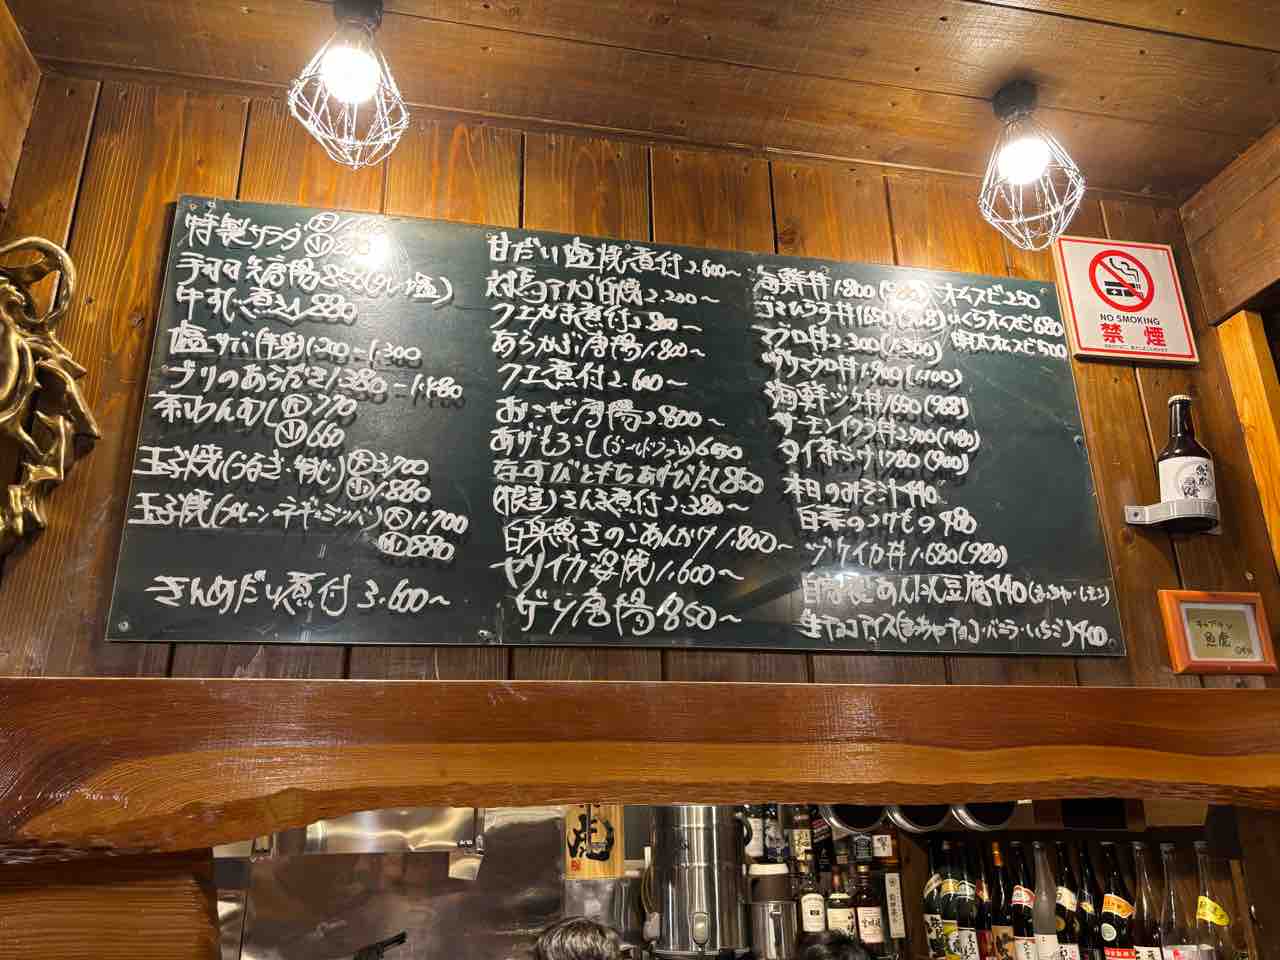 特製サラダ 大
小
手羽先唐揚 858(タレ・塩)
牛すじ煮込 880
塩サバ(半身)1.200=1.300
ブリのあらだき1.380=1.480
茶わんむし 大 770
小 660
玉子焼(うなぎ・牛すじ) 大 3.700
小 1.880
玉子焼(プレーン・ネギ・ミツバ) 大 1.700
小 880
きんめだい煮付 3.600〜
甘だい塩焼・煮付 2.600〜
対馬アナゴ白焼 2.200〜
クエかま煮付 2.800〜
あらかぶ唐揚 1.800〜
クエ煮付 2.600〜
おこぜ唐揚 2.800〜
あげもろこし(ゴールドラッシュ)650
なすびともちあげびたし850
(根室)さんま煮付 2.380〜
白身魚きのこあんかけ 1.800〜
ヤリイカ姿焼 1.600〜
ゲソ唐揚 850〜
海鮮丼 1.800
ゴマひらす丼1650(968)
マグロ丼 2.300(1.300)
ヅケマグロ丼 1.900(1.100)
海鮮ヅケ丼 1650(968)
サーモンイクラ丼2.700(1.480)
タイ茶づけ1780(900)
本日のみそ汁 440
白菜のつけもの 480
ヅケイカ丼 1.680(980)
自家製あんにん豆腐440(まっちゃ・レモン)
生チョコアイス(まっちゃ・チョコ・バニラ・いちご)400
オムスビ 250
いくらオムスビ 680
明太オムスビ 500
NO SMOKING
禁煙
魚虎
虎